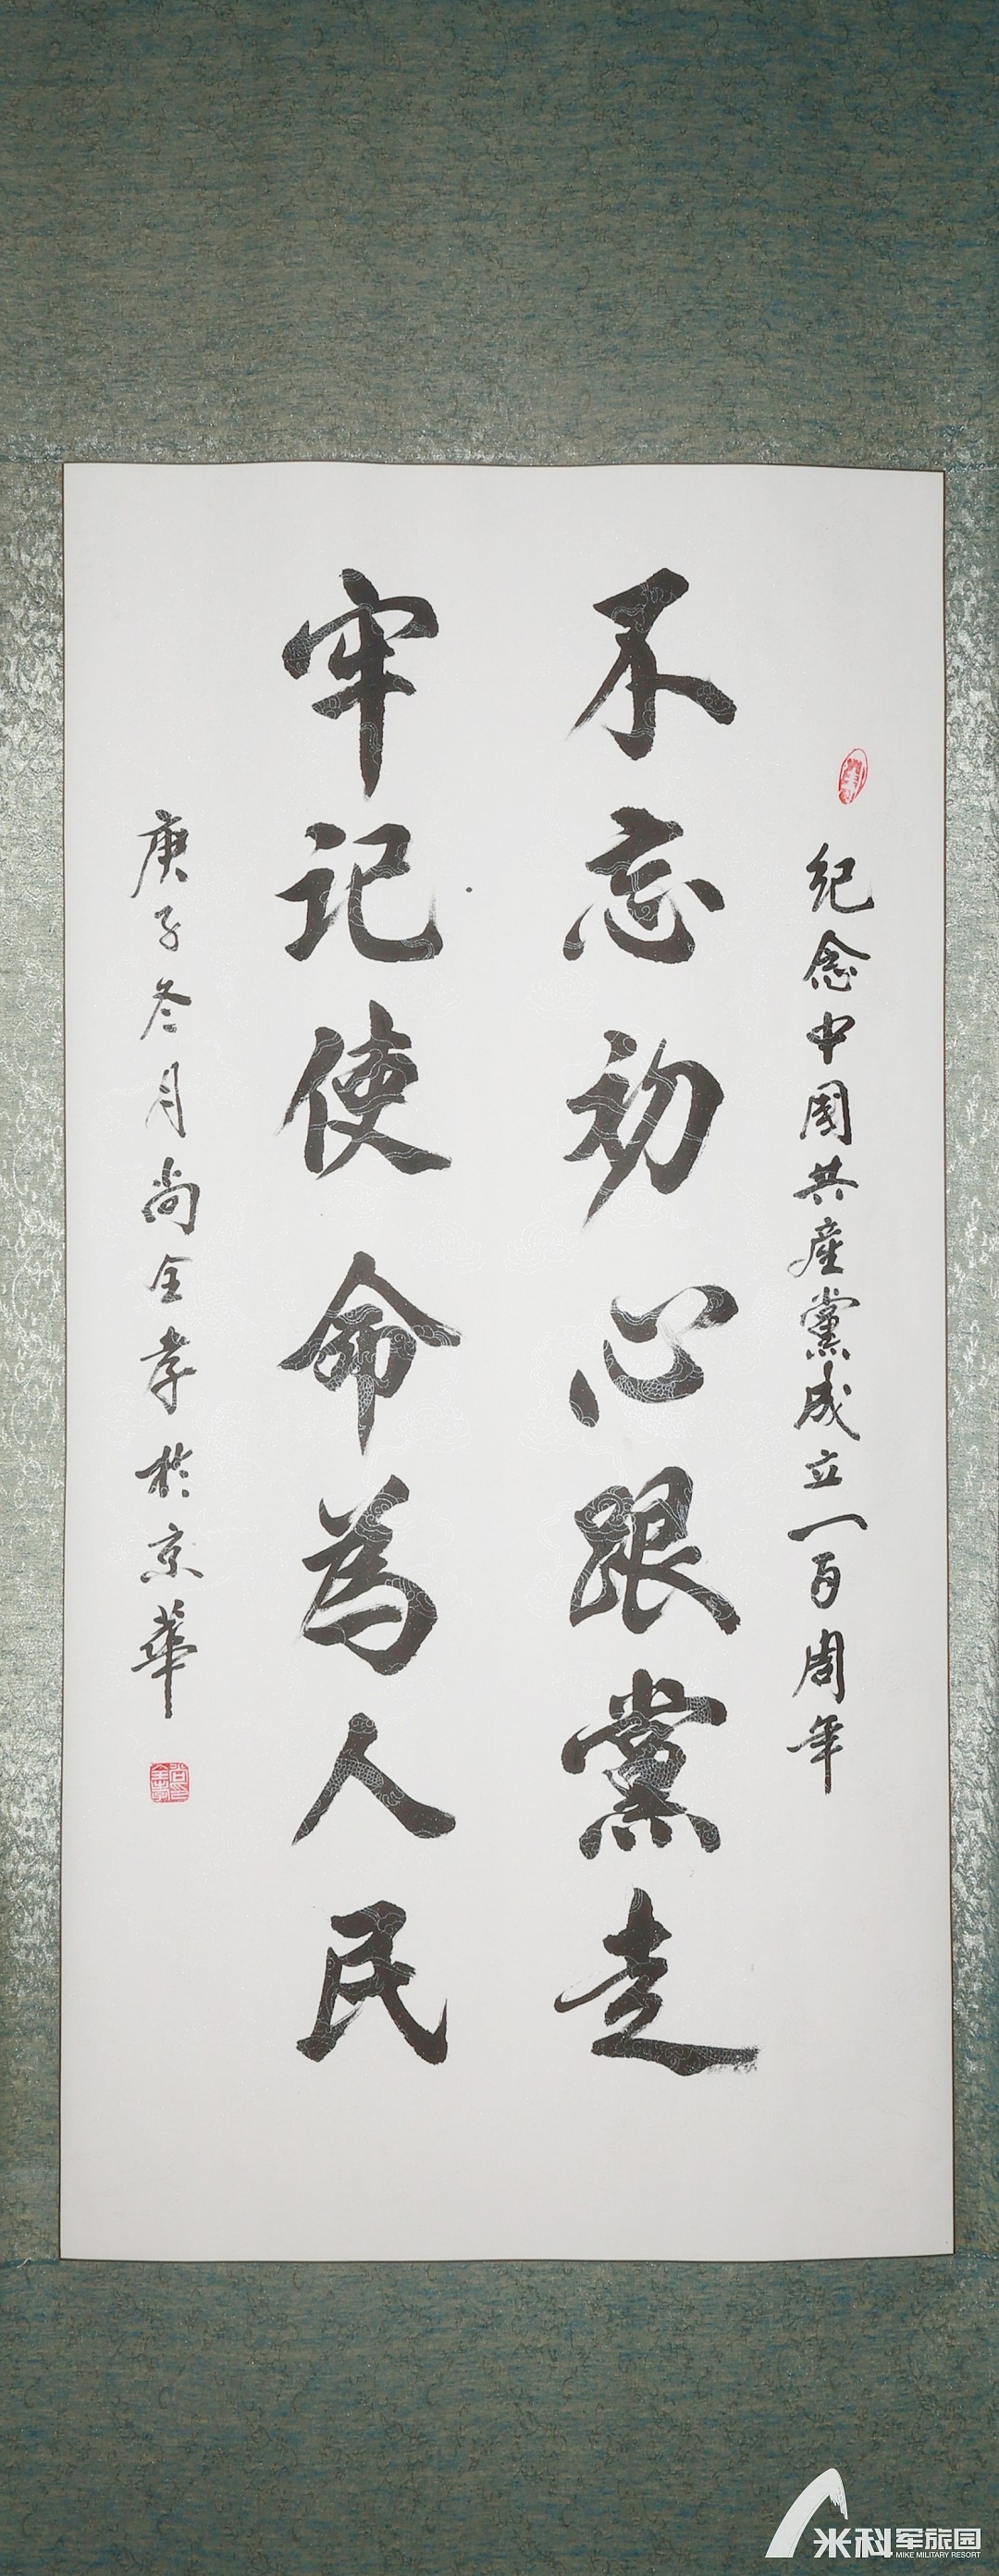 纪念中國共産黨成立一百周年
不忘初心跟黨走
牢记使命為人民
庚子冬月尚全孝於京華
米科军旅园
MIKE MILITARY RESORT